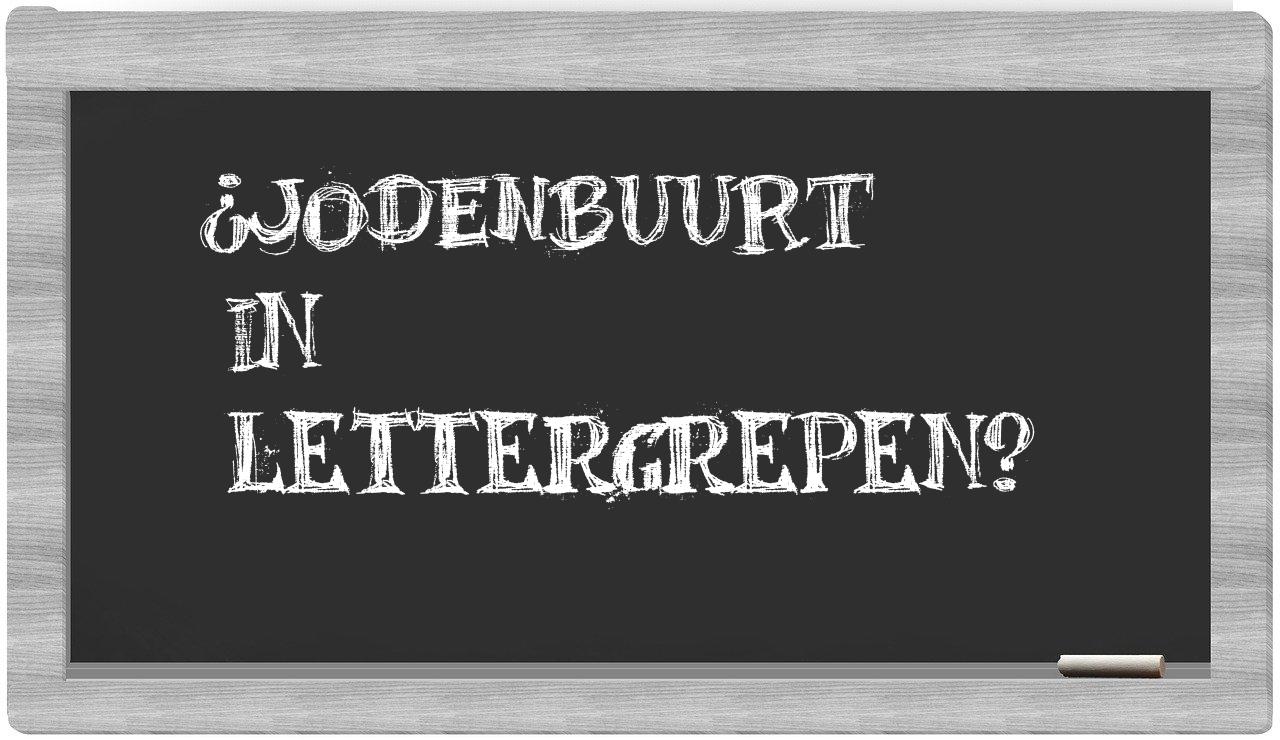 ¿JODENBUURT
IN
LETTERGREPEN?